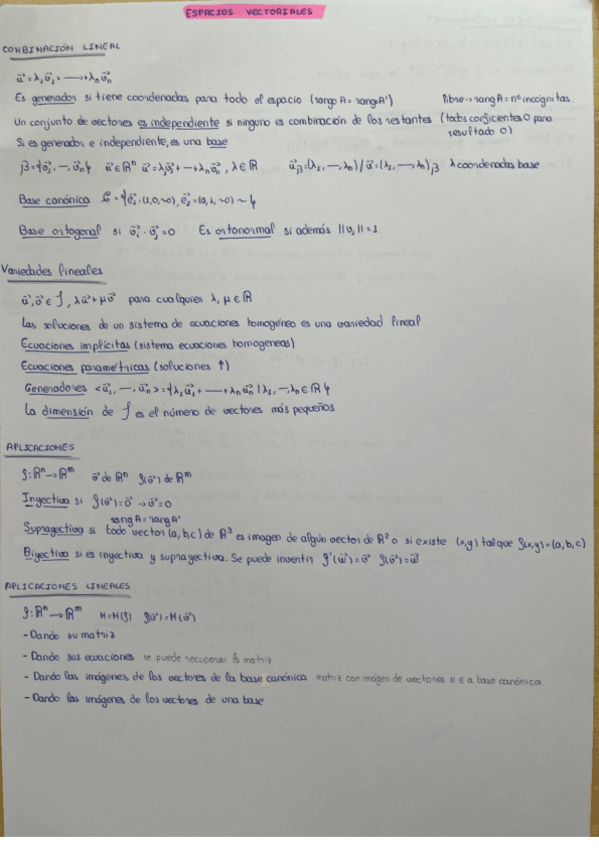 ESPACIOS VECTORIALES
COMBINACIÓN LINEAL
u⃗ = λ₁v⃗₁ + ⋯ + λₙv⃗ₙ
Es generador si tiene coordenadas para todo el espacio (rango A = rang A') libre → rang A = nº incógnitas.
Un conjunto de vectores es independiente si ninguno es combinación de los restantes (todos coeficientes 0 para
resultado 0)
Si es generador e independiente, es una base
β = {v⃗₁, ⋯, v⃗ₙ} u⃗ ∈ ℝⁿ u⃗ = λ₁v⃗₁ + ⋯ + λₙv⃗ₙ, λ ∈ ℝ u⃗β = (λ₁, ⋯, λₙ) / u⃗ = (λ₁, ⋯, λₙ)β λ coordenadas base
Base canónica C = {e⃗₁ = (1,0,⋯0), e⃗₂ = (0,1,⋯0) ⋯}
Base ortogonal si v⃗ᵢ · v⃗ⱼ = 0 Es ortonormal si además ||vᵢ|| = 1
Variedades lineales
u⃗, v⃗ ∈ S, λu⃗ + μv⃗ para cualquier λ, μ ∈ ℝ
Las soluciones de un sistema de ecuaciones homogéneo es una variedad lineal
Ecuaciones implícitas (sistema ecuaciones homogeneas)
Ecuaciones paramétricas (soluciones ↑)
Generadores <u⃗₁, ⋯, u⃗ₙ> = {λ₁u⃗₁ + ⋯ + λₙu⃗ₙ | λ₁, ⋯, λₙ ∈ ℝ}
La dimensión de S es el número de vectores más pequeños
APLICACIONES
f: ℝⁿ → ℝᵐ v⃗ de ℝⁿ f(v⃗) de ℝᵐ
Inyectiva si f(v⃗) = 0⃗ → v⃗ = 0
rang A = rang A'
Suprayectiva si todo vector (a,b,c) de ℝ³ es imagen de algún vector de ℝ² o si existe (x,y) tal que f(x,y) = (a,b,c)
Biyectiva si es inyectiva y suprayectiva. Se puede invertir f'(w⃗) = v⃗ f(v⃗) = w⃗
APLICACIONES LINEALES
f: ℝⁿ → ℝᵐ M = M(f) f(v⃗) = M(v⃗)
- Dando su matriz
- Dando sus ecuaciones se puede recuperar la matriz
- Dando las imágenes de los vectores de la base canónica matriz con imagen de vectores si ∈ a base canónica
- Dando las imágenes de los vectores de una base